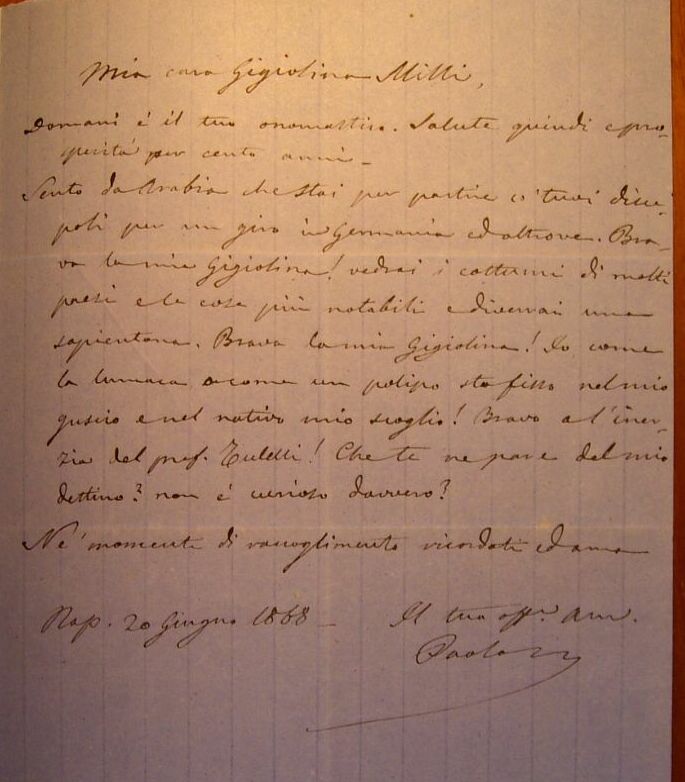 Mia cara Gigiolina Milli,
Domani è il tuo onomastico. Salute quindi e pro-
sperità per cento anni –
Sento da Arabia che stai per partire co' tuoi disce-
poli per un giro in Germania ed altrove. Bra-
va la mia Gigiolina! vedrai i costumi di molti
paesi e le cose più notabili e diverrai una
sapientona. Brava la mia Gigiolina! Io come
la lumaca o come un polipo sto fisso nel mio
guscio e nel nativo mio scoglio! Bravo a l'iner-
zia del prof. Tulelli! Che te ne pare del mio
dettino? non è curioso davvero?
Ne' momenti di raccoglimento ricordati ed ama
Nap. 20 Giugno 1868 –
Il tuo aff.º am.
Paolo